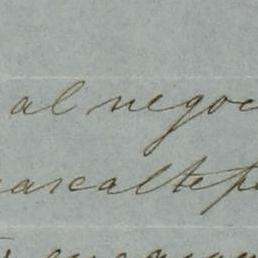 al negoc
ascaltep